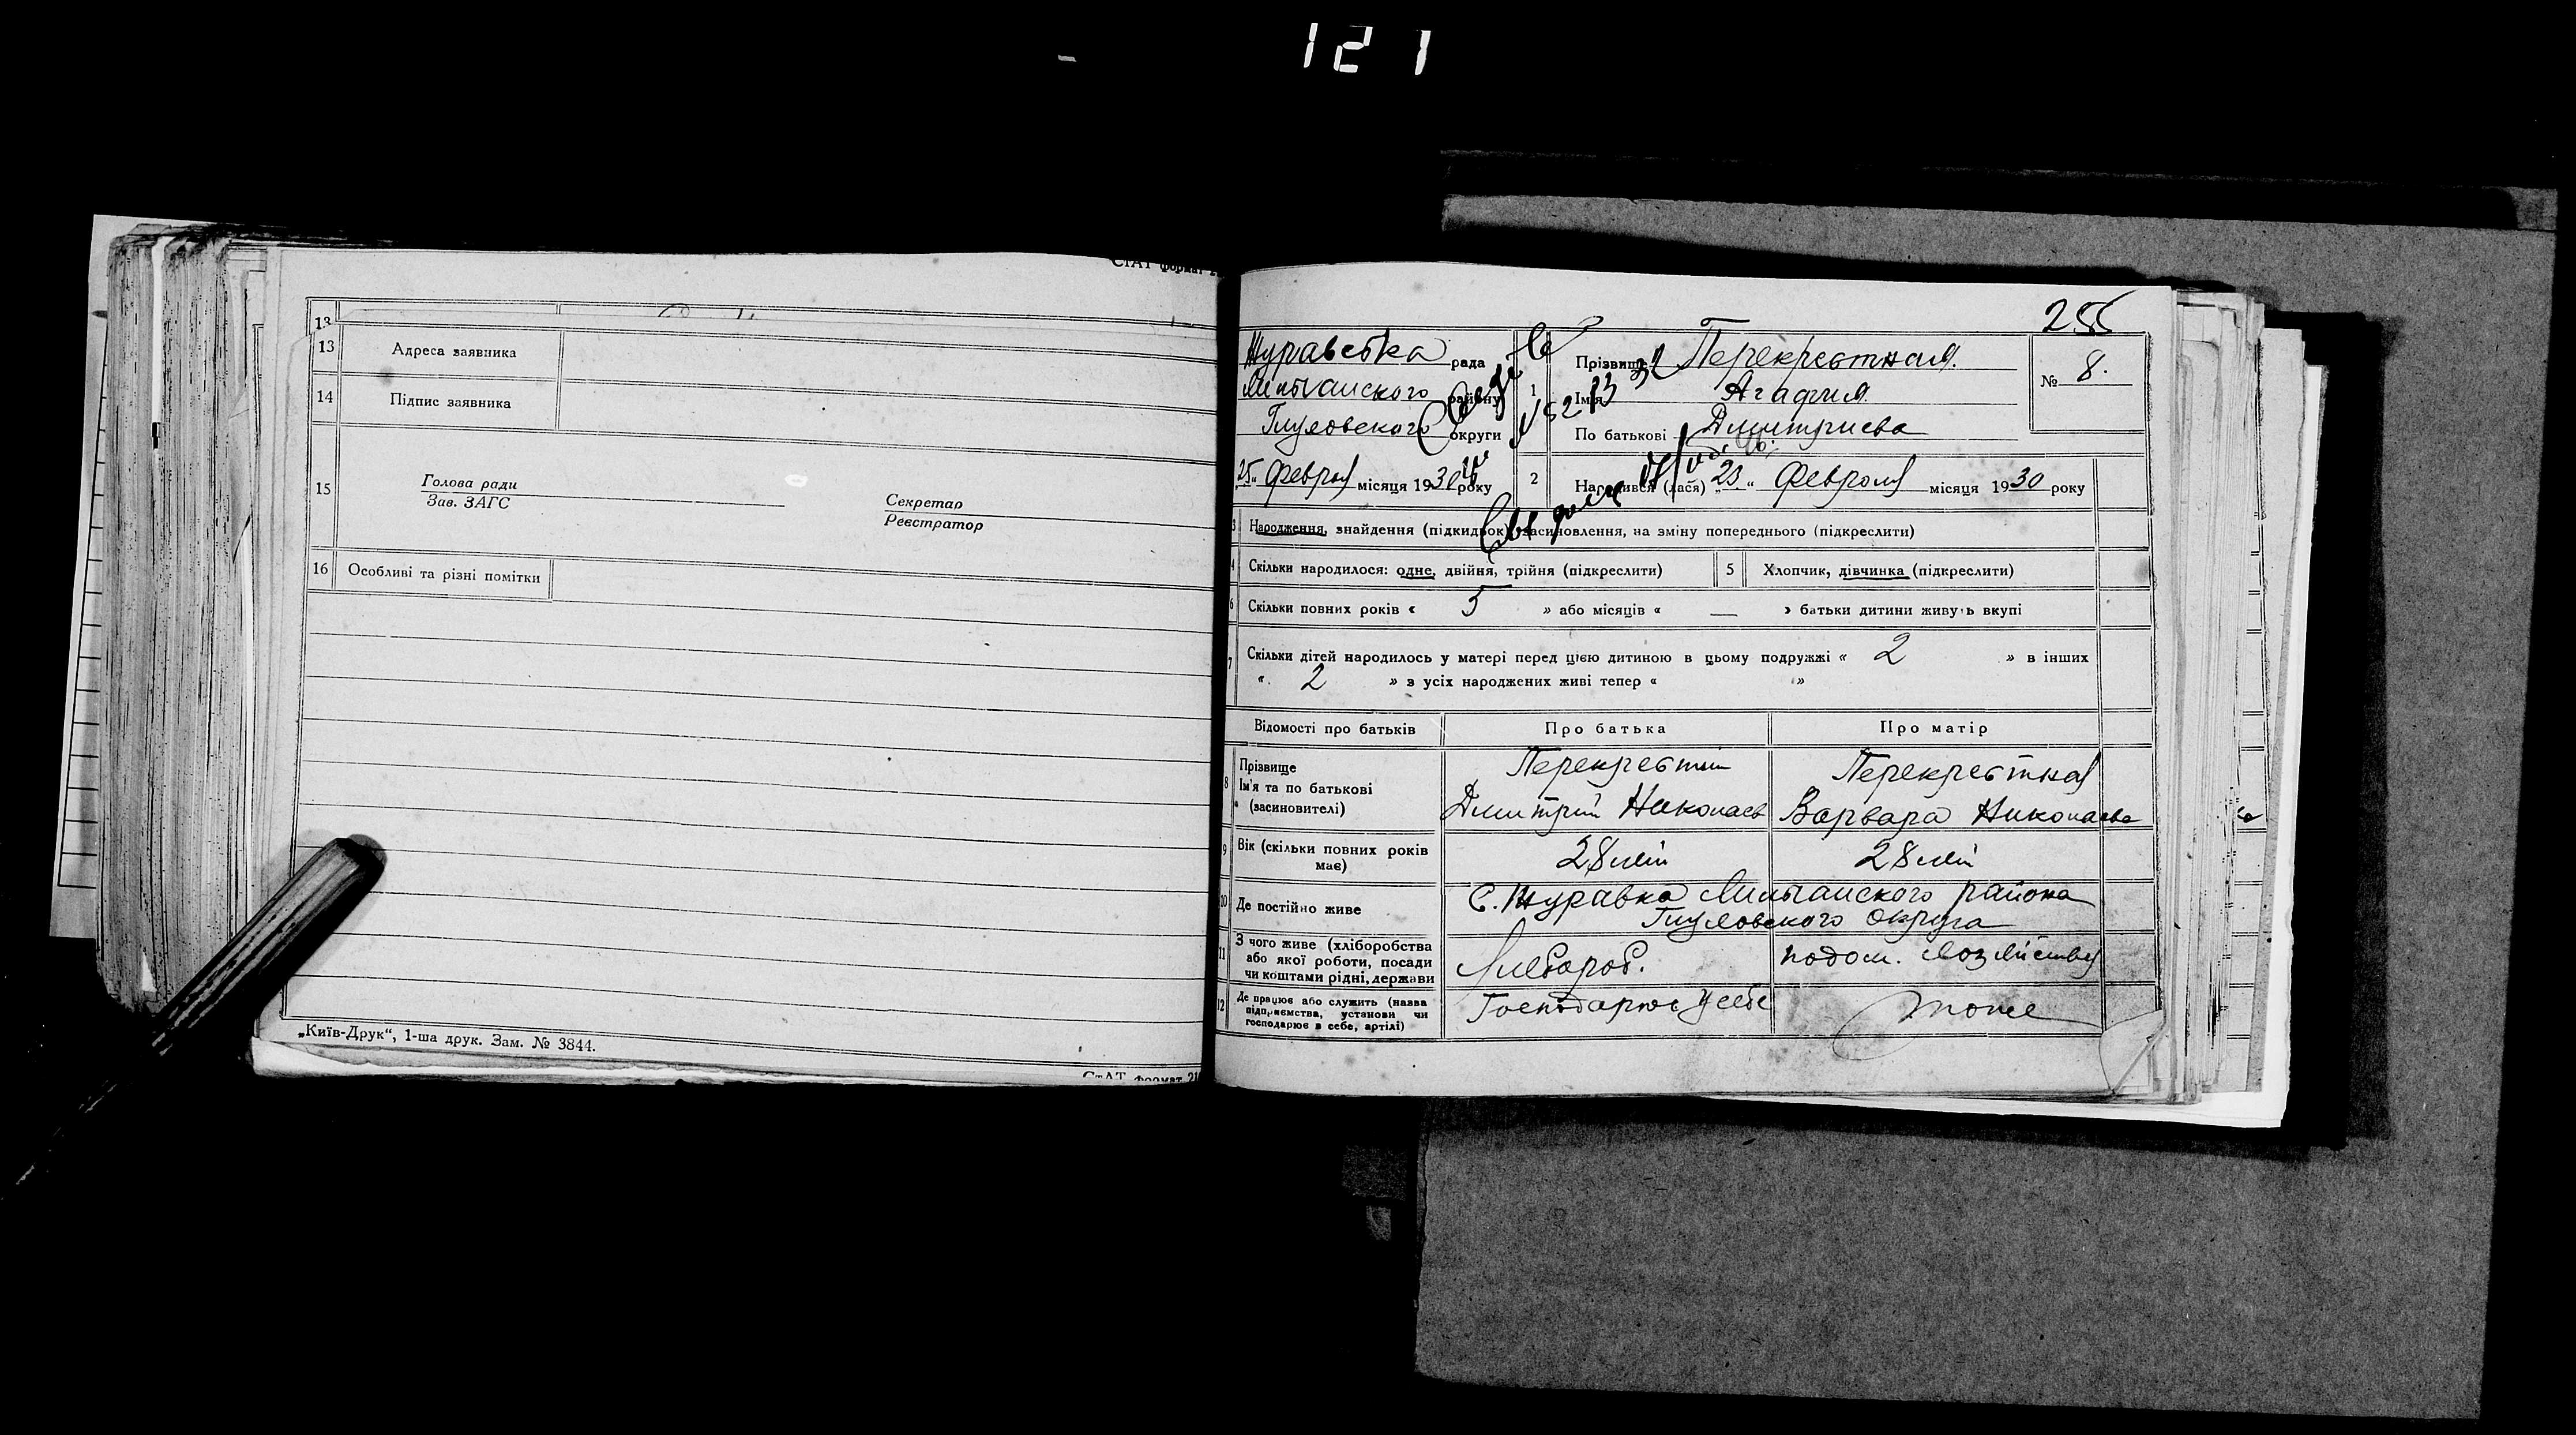 121
СтАТ формат 2
13
13 Адреса заявника
14 Підпис заявника
15 Голова ради
Зав. ЗАГС
Секретар
Реєстратор
16 Особливі та різні помітки
„Київ-Друк“, 1-ша друк. Зам. № 3844.
СтАТ формат 21
255
рада
району
округи
25 " Февраля місяця 1930 року
1 Прізвище Перекрестная
Ім'я Агафия
По батькові Дмитриева
№ 8.
2 Народився (лася) „ " Февраля місяця 1930 року
3 Народження, знайдення (підкидьок) засиновлення, на зміну попереднього (підкреслити)
4 Скільки народилося: одне, двійня, трійня (підкреслити) 5 Хлопчик, дівчинка (підкреслити)
6 Скільки повних років « 5 » або місяців « — » батьки дитини живуть вкупі
7 Скільки дітей народилось у матері перед цією дитиною в цьому подружжі « 2 » в інших
« 2 » з усіх народжених живі тепер « »
Відомості про батьків Про батька Про матір
8 Прізвище
Ім'я та по батькові
(засиновителі)
Перекрестний
Дмитрий Николаев
Перекрестная
Варвара Николаева
9 Вік (скільки повних років
має)
28 лет 28 лет
10 Де постійно живе
С. Журавка района
округа
11 З чого живе (хліборобства
або якої роботи, посади
чи коштами рідні, держави
Хлебороб.
подом. хозяйству
12 Де працює або служить (назва
підприємства, установи чи
господарює в себе, артілі)
Господарює у себе
тоже